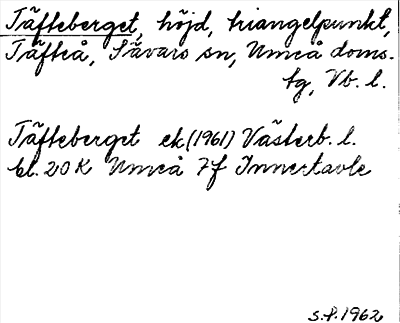 Täfteberget, höjd, triangelpunkt,
Täfteå, Sävars sn, Umeå doms.
tg, Vb. l.
Täfteberget ek (1961) Västerb. l.
bl. 20 K Umeå 7f Innertavle
s.f. 1962